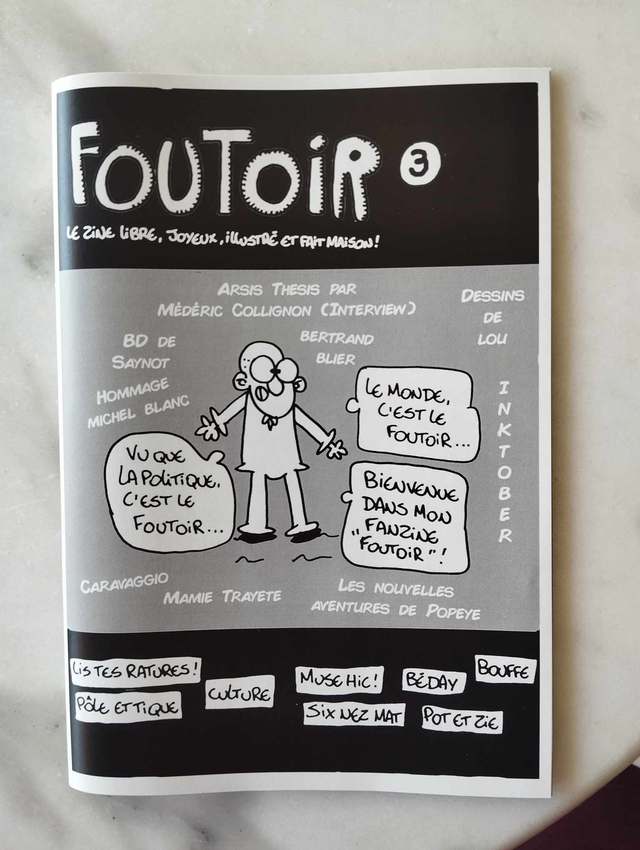 FOUTOIR 3
LE ZINE LIBRE, JOYEUX, ILLUSTRÉ ET FAIT MAISON!
ARSIS THESIS PAR
MÉDÉRIC COLLIGNON (INTERVIEW)
DESSINS
DE
LOU
BD DE
SAYNOT
BERTRAND
BLIER
HOMMAGE
MICHEL BLANC
INKTOBER
LE MONDE,
C'EST LE
FOUTOIR...
VU QUE
LA POLITIQUE,
C'EST LE
FOUTOIR...
BIENVENUE
DANS MON
FANZINE
"FOUTOIR"!
CARAVAGGIO
MAMIE TRAYETE
LES NOUVELLES
AVENTURES DE POPEYE
LIS TES RATURES!
PÔLE ET TIQUE
CULTURE
MUSE HIC!
SIX NEZ MAT
BÉDAY
POT ET ZIE
BOUFFE